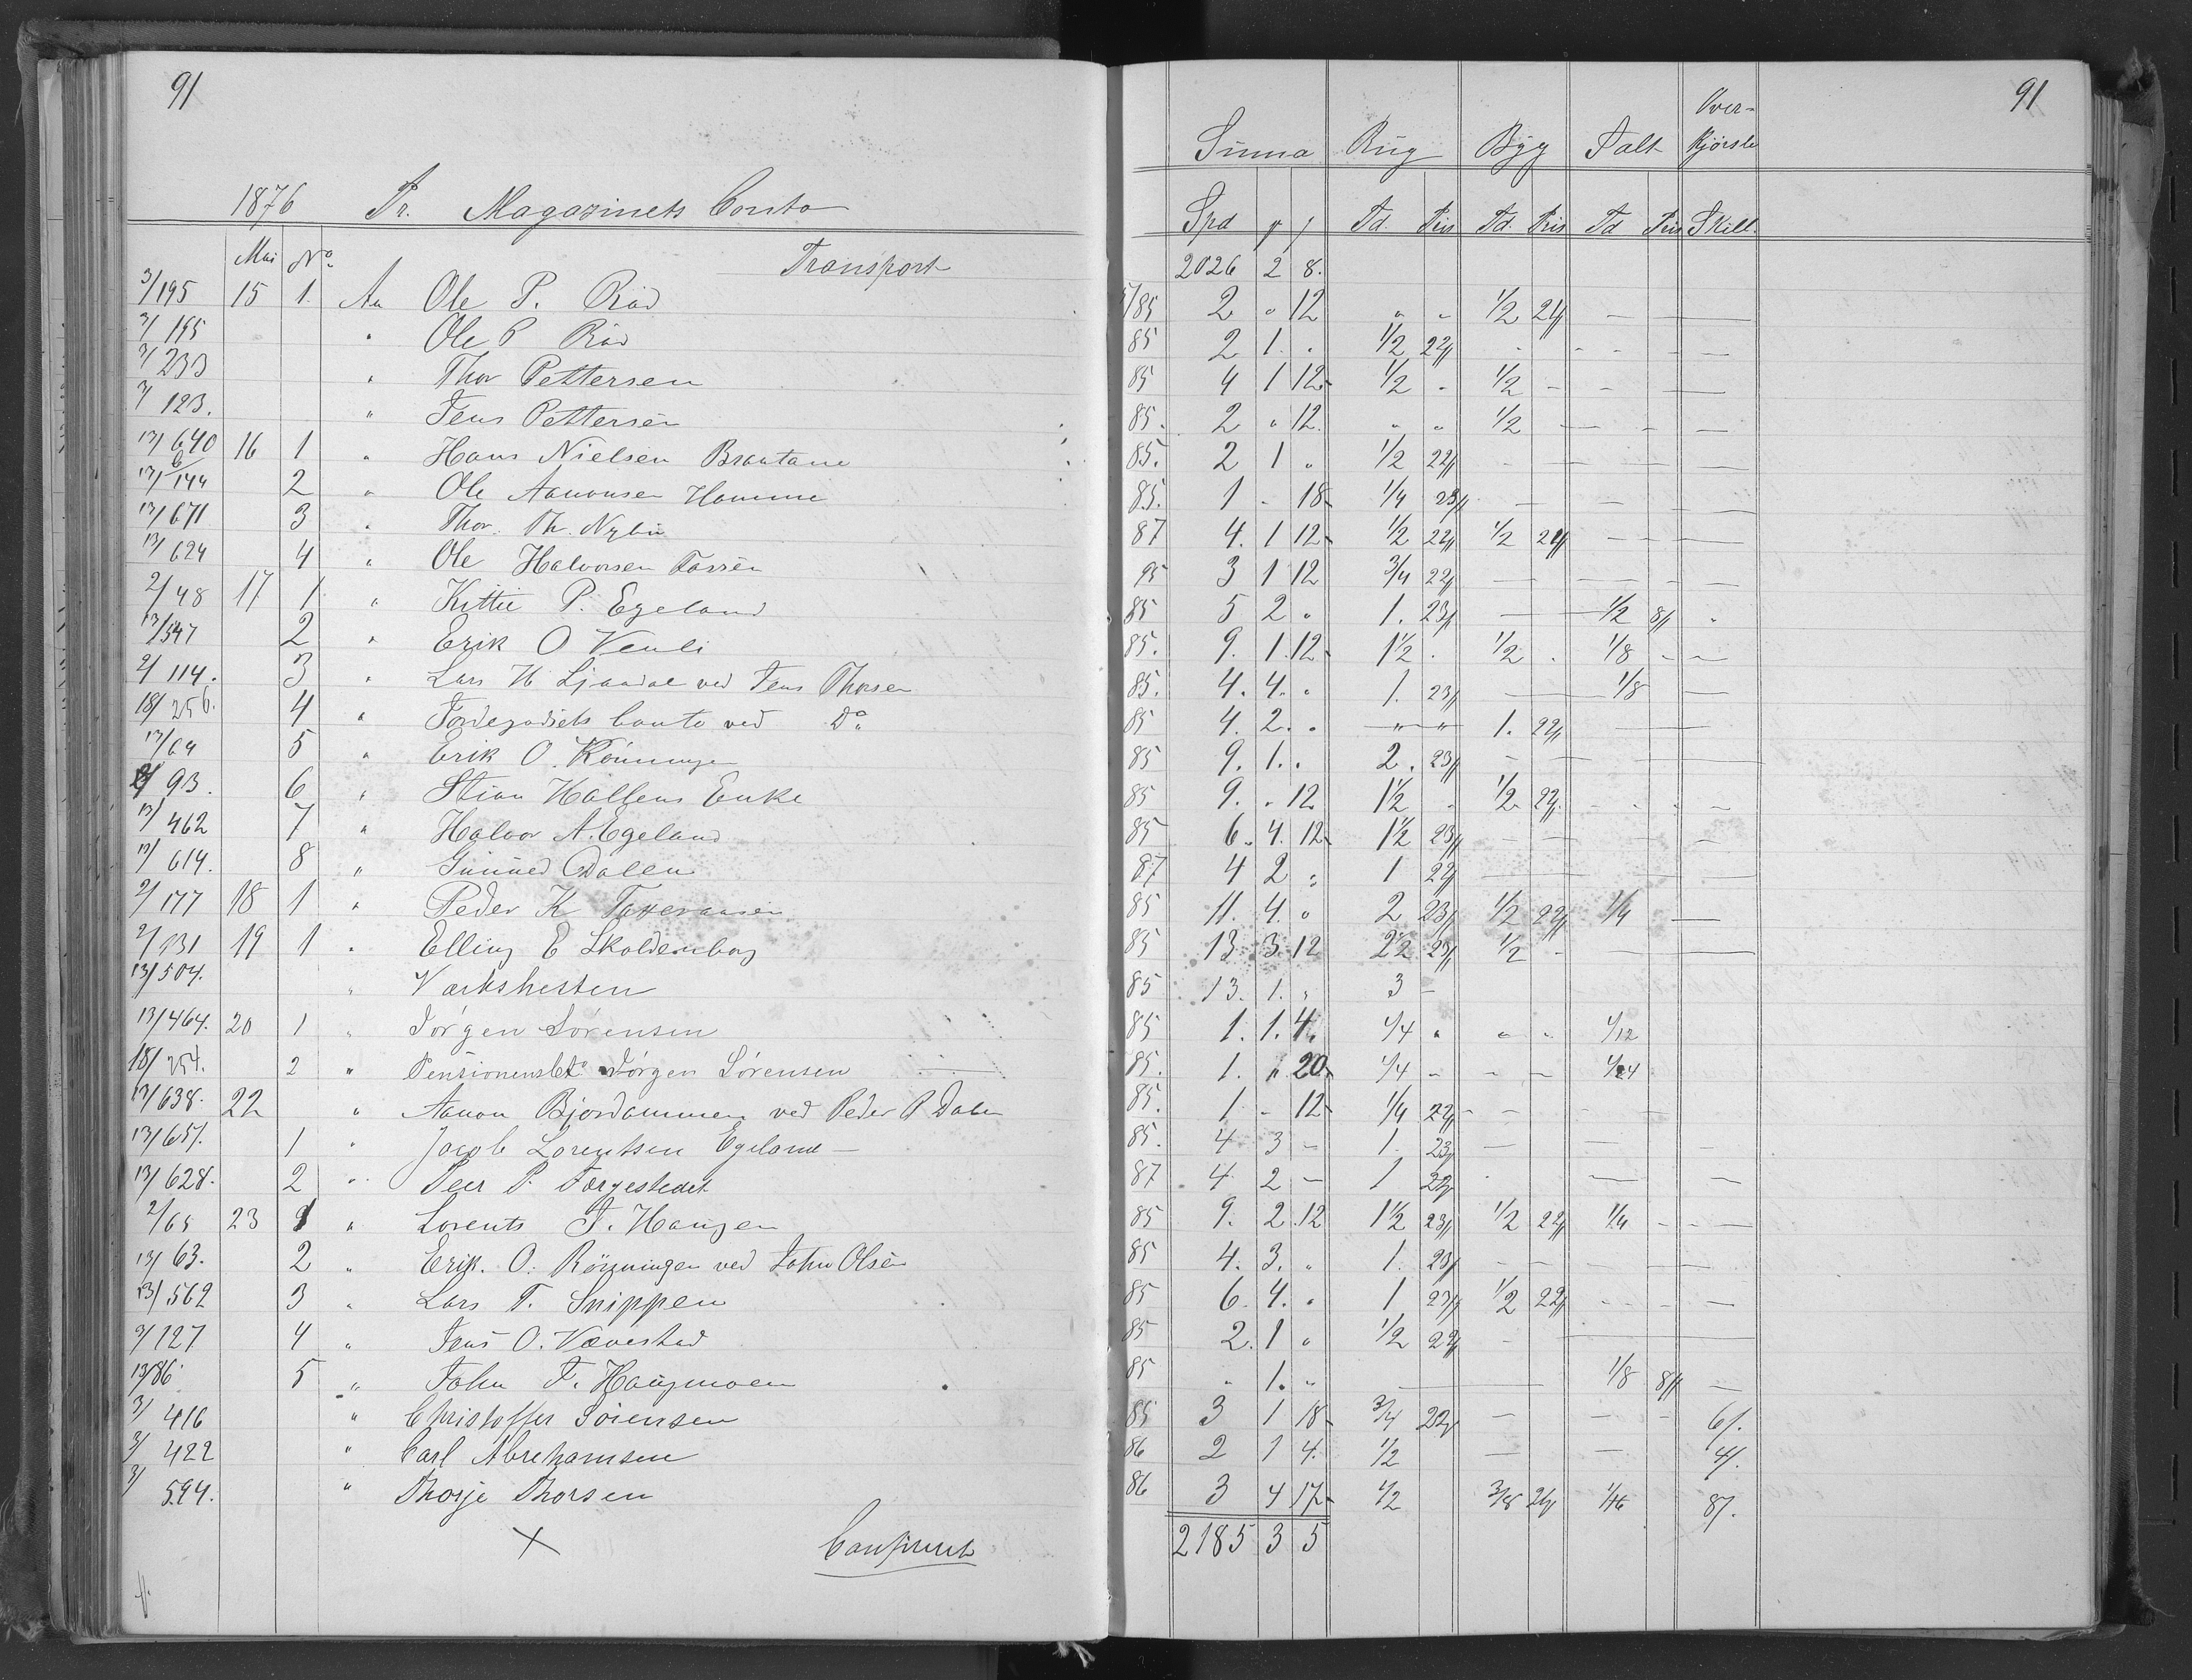 91
1876 Pr. Magazinets Conto
Mai No. Transport
3/195 15 1. An Ole P. Röd
3/195 " Ole P Röd
3/233 " Thor Pettersen
3/123. " Jens Pettersen
13/640 16 1 " Hans Nielsen Braatane
13/144 2 " Ole Aanonsen Homme
13/671 3 " Thor. Th. Nybu
13/624 4 " Ole Halvorsen
2/48 17 1 " Kittie P. Egeland
13/547 2 " Erik O Venli
2/114. 3 " Lars H Ljaadal ved Jens Thorsen
18/256. 4 " Jordegodsets Conto ved Do
13/64 5 " Erik O. Rönningen
2/93. 6 " Stian Hallens Enke
13/462 7 " Halvor A. Egeland
13/614. 8 " Gunned Dalen
2/177 18 1 " Peder K
2/131 19 1 " Elling E Skoldenborg
13/504. " Værkshesten
13/464. 20 1 " Jörgen Sörensen
18/254. 2 " Jörgen Sörensen
13/638. 22 " Aanon Bjordammen ved Peder P Dalen
13/651. 1 " Jacob Lorentsen Egeland
13/628. 2 " Peer P. Torgestedet
2/65 23 1 " Lorents J. Haugen
13/63. 2 " Erik. O. Rönningen ved John Olsen
13/562 3 " Lars T. Snippen
3/127 4 " Jens O. Vævestad
13/86. 5 " John J. Haugmoen
3/416 " Christoffer Sörensen
3/422 " Carl Abrehamsen
3/594. " Thorje Thorsen
X
91
Summa Rug Byg Salt Over-
Kjørsle
Spd Td. Pris Td. Pris Td Pris Skill.
2026 2 8.
85 2 " 12 " " 1/2 21/
85 2 1 . 1/2 22/
85 4 1 12 1/2 - 1/2 -
85. 2 " 12. " " 1/2
85. 2 1 " 1/2 22/
85. 1 - 18 1/4 23/
87 4. 1 12 1/2 22/ 1/2 21/
95 3 1 12 3/4 22/
85 5 2 " 1. 23/ 1/2 8/
85. 9. 1. 12 1 1/2 . 1/2 . 1/8
85. 4. 4. " 1. 23/ 1/8
85 4. 2. . " " 1. 22/
85 9. 1. . 2. 23/
85 9. " 12 1 1/2 . 1/2 22/
85 6. 4. 12 1 1/2 23/
87 4 2 " 1 22/
85 11. 4. " 2 23/ 1/2 22/ 1/4
85 13. 3. 12 2 1/2 23/ 1/2 -
85 13. 1. " 3 -
85 1. 1. 4. 1/4 " " " 1/12
85. 1. " 20 1/4 - - - 1/24
85. 1 - 12 1/4 22/
85. 4 3 - 1. 23/
87 4 2 - 1 22/
85 9. 2 12 1 1/2 23/ 1/2 22/ 1/4
85 4. 3. " 1. 23/
85 6. 4. " 1 23/ 1/2 22/
85 2. 1 " 1/2 22/
85 " 1. " 1/8 8/
85 3 1 18 3/4 22/ 6/.
86 2 1 4. 1/2 4/.
86 3 4 17 1/2 3/8 21/ 1/16 8/.
2185 3 5